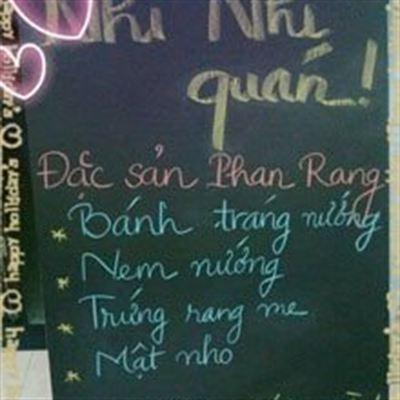 Nhi Nhi
quán!
Đặc sản Phan Rang:
* Bánh tráng nướng
* Nem nướng
* Trứng rang me
* Mật nho
happy holiday's